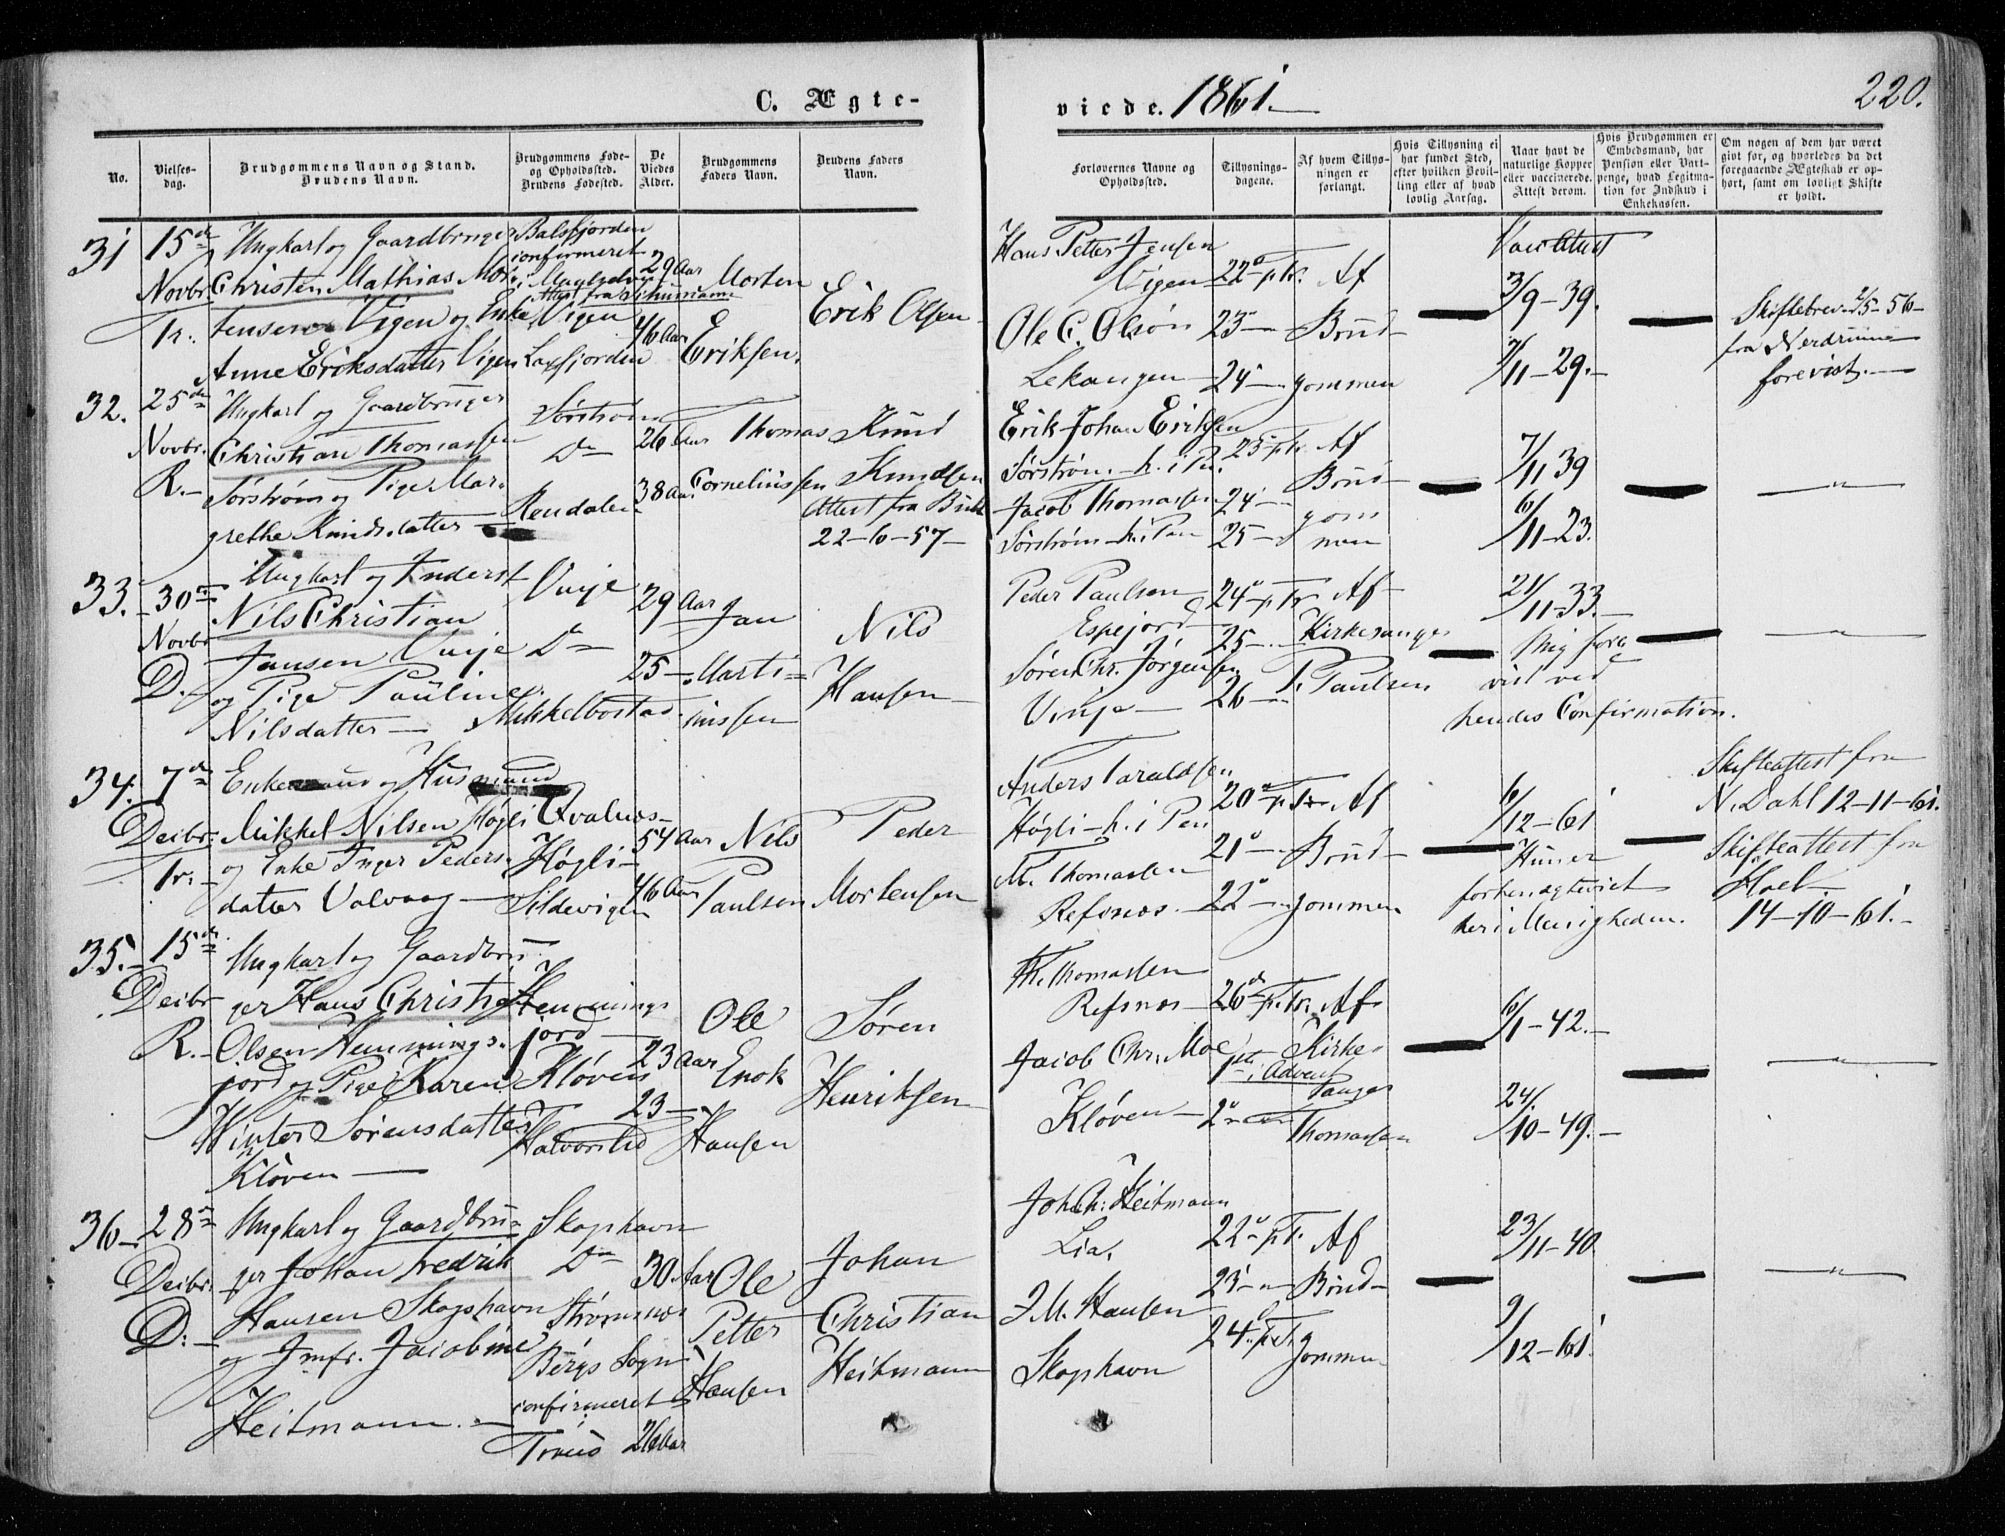 C. Ægte-
viede. 1861.
220.
No.
Vielses-
dag.
Brudgommens Navn og Stand.
Brudens Navn.
Brudgommens Føde-
og Opholdssted.
Brudens Fødested.
De
Viedes
Alder.
Brudgommens
Faders Navn.
Brudens Faders
Navn.
Forlovernes Navne og
Opholdssted.
Tillysnings-
dagene.
Af hvem Tillys-
ningen er
forlangt.
Hvis Tillysning ei
har fundet Sted,
efter hvilken Bevil-
ling eller af hvad
lovlig Aarsag.
Naar havt de
naturlige Kopper
eller vaccinerede.
Attest derom.
Hvis Brudgommen er
Embedsmand, har
Pension eller Vart-
penge, hvad Legitma-
tion for Indskud i
Enkekassen.
Om nogen af dem har været
givt før, og hvorledes da det
foregaaende Ægteskab er op-
hørt, samt om lovligt Skifte
er holdt.
31
15de
Novbr.
Tr.
Ungkarl og Gaardbruger
Christen Mathias Mor-
tensen Vigen og Enke
Anne Eriksdatter Vigen
Balsfjorden
confirmeret
Vigen
Laxfjorden
29 Aar
46 Aar
Morten
Eriksen.
Erik Olsen
Hans Petter Jensen
Vigen
Ole C. Olsøn
Lekangen
22 p. Tr.
23
24
Af
Brud-
gommen
3/9-39.
7/11-29.
Skiftebrev 2/5-56-
fra Nerdrum
forevist.
32.
25de
Novbr.
R.
Ungkarl og Gaardbruger
Christian Thomassen
Sørstrøm og Pige Mar-
grethe Knudsdatter
Sørstrøm
Do
Rendalen
26 Aar
38 Aar
Thomas
Corneliussen
Knud
Knudsen
Attest fra
22-6-57-
Erik Johan Eriksen
Sørstrøm
Jacob Thomassen
Sørstrøm
23 p. Tr.
24
25
Af
Brud-
gom
men
7/11 39
6/11-23.
33.
30
Novbr
D.
Ungkarl og Inderst
Nils Christian
Jansen Vinje
og Pige Pauline
Nilsdatter
Vinje
Do
Mikkelbostad
29 Aar
25
Jan
Marti-
nussen
Nils
Hansen
Peder Paulsen
Espejord
Søren Chr. Jørgensen
Vinje
24 p. Tr.
25
26
Af
Kirkesanger
P. Paulsen
21/11-33.
Mig fore
vist ved
hendes Confirmation.
34.
7de
Decbr.
Tr.
Enkemand og Husmand
Mikkel Nilsen Høgli
og Enke Inger Peders-
datter Valvaag
Qvalnes-
Høgli
Sildevigen
54 Aar
46 Aar
Nils
Paulsen
Peder
Mortensen
Anders Taraldsen
Høgli
M. Thomassen
Refsnes.
20 p. Tr.
21
22
Af
Brud-
gommen
6/12-61
Hun er
her i Menigheden.
Skifteattest fra
N. Dahl 12-11-61.
Skifteattest fra
14-10-61.
35.
15de
Decbr
R.
Ungkarl og Gaardbru-
ger Hans Christian
Olsen Hemmings-
jord og Pige Karen
Winter Sørensdatter
Kløven
Hemmings
jord
Kløven
23 Aar
23
Ole
Enok
Hansen
Søren
Henriksen
M. Thomassen
Refsnes
Jacob Chr. Moe
Kløven
26 p. Tr.
1ste i Advent
2
Af
Kirke-
sanger
Thomassen
6/1-42.
24/10-49.
36
28
Decbr.
D.
Ungkarl og Gaardbru-
ger Johan Fredrik
Hansen Skogshavn
og Jmfr. Jacobine
Heitmann.
Skogshavn
Do
Strømsnes
Bergs Sogn
confirmeret
30 Aar
26 Aar
Ole
Petter
Hansen
Johan
Christian
Heitmann
Joh. Ch. Heitmann
Lia.
J. M. Hansen
Skogshavn
22 p. Tr.
23
24 p. Tr.
Af
Brud-
gommen
23/11-40
9/12-61.